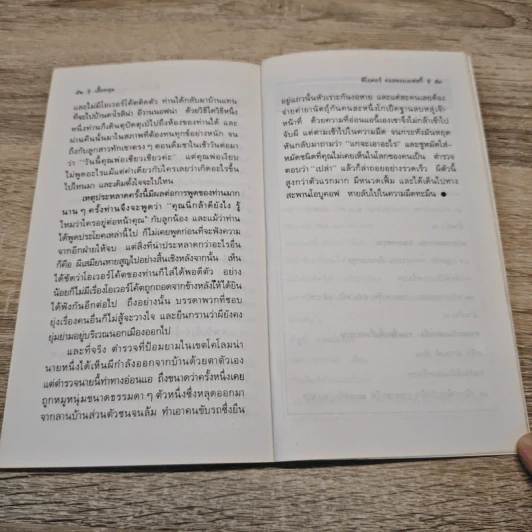 และไม่มีโอเวอร์โค้ตติดตัว ท่านได้กลับมาบ้านแทน
ที่จะไปบ้านคาโรลิน่า อิวานนอฟน่า ด้วยวิธีใดวิธีหนึ่ง
หนึ่งท่านก็เดินตุปัดตุเป๋ไปถึงห้องของท่านได้ และ
นั่งค้างคืนนั้นมาในสภาพที่ต้องทนทุกข์อย่างหนัก จน
ถึงกับลูกสาวทักเขาตรง ๆ ตอนดื่มชาในเช้าวันต่อมา
ว่า "วันนี้คุณพ่อเซียวเชียวค่ะ" แต่คุณพ่อเงียบ
ไม่พูดอะไรแม้แต่คำเดียวกับใครเลยว่าเกิดอะไรขึ้น
ไปไหนมา และเดิมตั้งใจจะไปไหน
เหตุประหลาดครั้งนี้มีผลต่อการพูดของท่านมาก
นาน ๆ ครั้งท่านจึงจะพูดว่า "คุณนี่กล้าดียังไง รู้
ไหมว่าใครอยู่ต่อหน้าคุณ" กับลูกน้อง และแม้ว่าท่าน
ได้พูดประโยคเหล่านี้ไป ก็ไม่เคยพูดก่อนที่จะฟังความ
จากอีกฝ่ายให้จบ แต่สิ่งที่น่าประหลาดกว่าอะไรอื่น
ก็คือ ผีเสมียนหายสูญไปอย่างสิ้นเชิงหลังจากนั้น เห็น
ได้ชัดว่าโอเวอร์โค้ตของท่านก็ใส่ได้พอดีตัว อย่าง
น้อยก็ไม่มีเรื่องโอเวอร์โค้ตถูกถอดจากข้างหลังให้ได้ยิน
ได้ฟังกันอีกต่อไป ถึงอย่างนั้น บรรดาพวกที่ชอบ
ยุ่งเรื่องคนอื่นก็ไม่สู้จะวางใจ และยืนกรานว่าผียังคง
ยุ่มย่ามอยู่บริเวณนอกเมืองออกไป
และที่จริง ตำรวจที่ป้อมยามในเขตโคโลมน่า
นายหนึ่งได้เห็นผีกำลังออกจากบ้านด้วยตาตัวเอง
แต่ตำรวจนายนี้ท่าทางอ่อนแอ ถึงขนาดว่าครั้งหนึ่งเคย
ถูกหมูหนุ่มขนาดธรรมดา ๆ ตัวหนึ่งซึ่งหลุดออกมา
จากลานบ้านส่วนตัวชนจนล้ม ทำเอาคนขับรถซึ่งยืน
อยู่แถวนั้นหัวเราะกันงอหาย และแต่ละคนเลยต้อง
จ่ายค่ายานัตถุ์กันคนละหนึ่งโกเป็คฐานลบหลู่เจ้า
หน้าที่ ด้วยความที่อ่อนแอนี้เองเขาจึงไม่กล้าเข้าไป
จับผี แต่ตามเข้าไปในความมืด จนกระทั่งมันหยุด
หันกลับมาถามว่า "แกจะเอาอะไร" และชูหมัดใส่-
หมัดชนิดที่คุณไม่เคยเห็นในโลกของคนเป็น ตำรวจ
ตอบว่า "เปล่า" แล้วก็ล่าถอยอย่างรวดเร็ว ผีตัวนี้
สูงกว่าตัวแรกมาก มีหนวดเฟิ้ม และได้เดินไปทาง
สะพานโอบูคอฟ หายลับไปในความมืดทะมึน ●